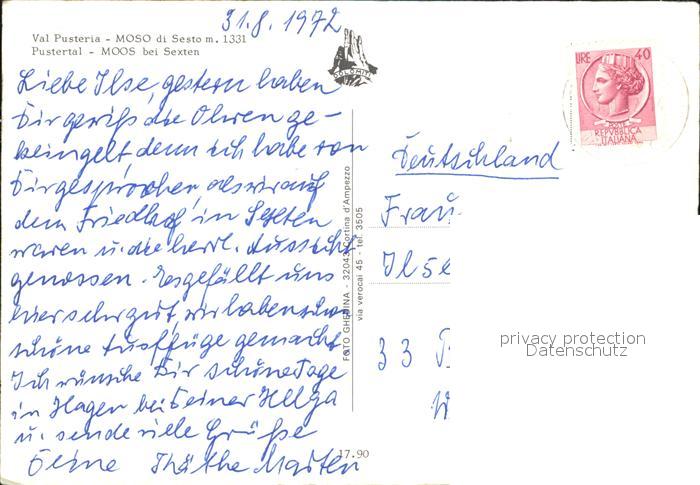 31.8.1972
Val Pusteria - MOSO di Sesto m. 1331
Pustertal - MOOS bei Sexten
DOLOMITI
Liebe Ilse, gestern haben
Dir gewiß die Ohren ge-
klingelt, denn ich habe von
Dir gesprochen, als wir auf
dem Friedhof in Sexten
waren u. die herrl. Aussicht
genossen. Es gefällt uns
hier sehr gut, wir haben schon
schöne Ausflüge gemacht
Ich wünsche Dir schöne Tage
in Hagen bei Deiner Helga
u. sende viele Grüße
Deine Käthe
FOTO GHEDINA - 32043 Cortina d'Ampezzo
via verocai 45 - tel. 3505
17.90
LIRE 40
POSTE
REPVBBLICA
ITALIANA
Deutschland
Frau
Ilse
33
privacy protection
Datenschutz